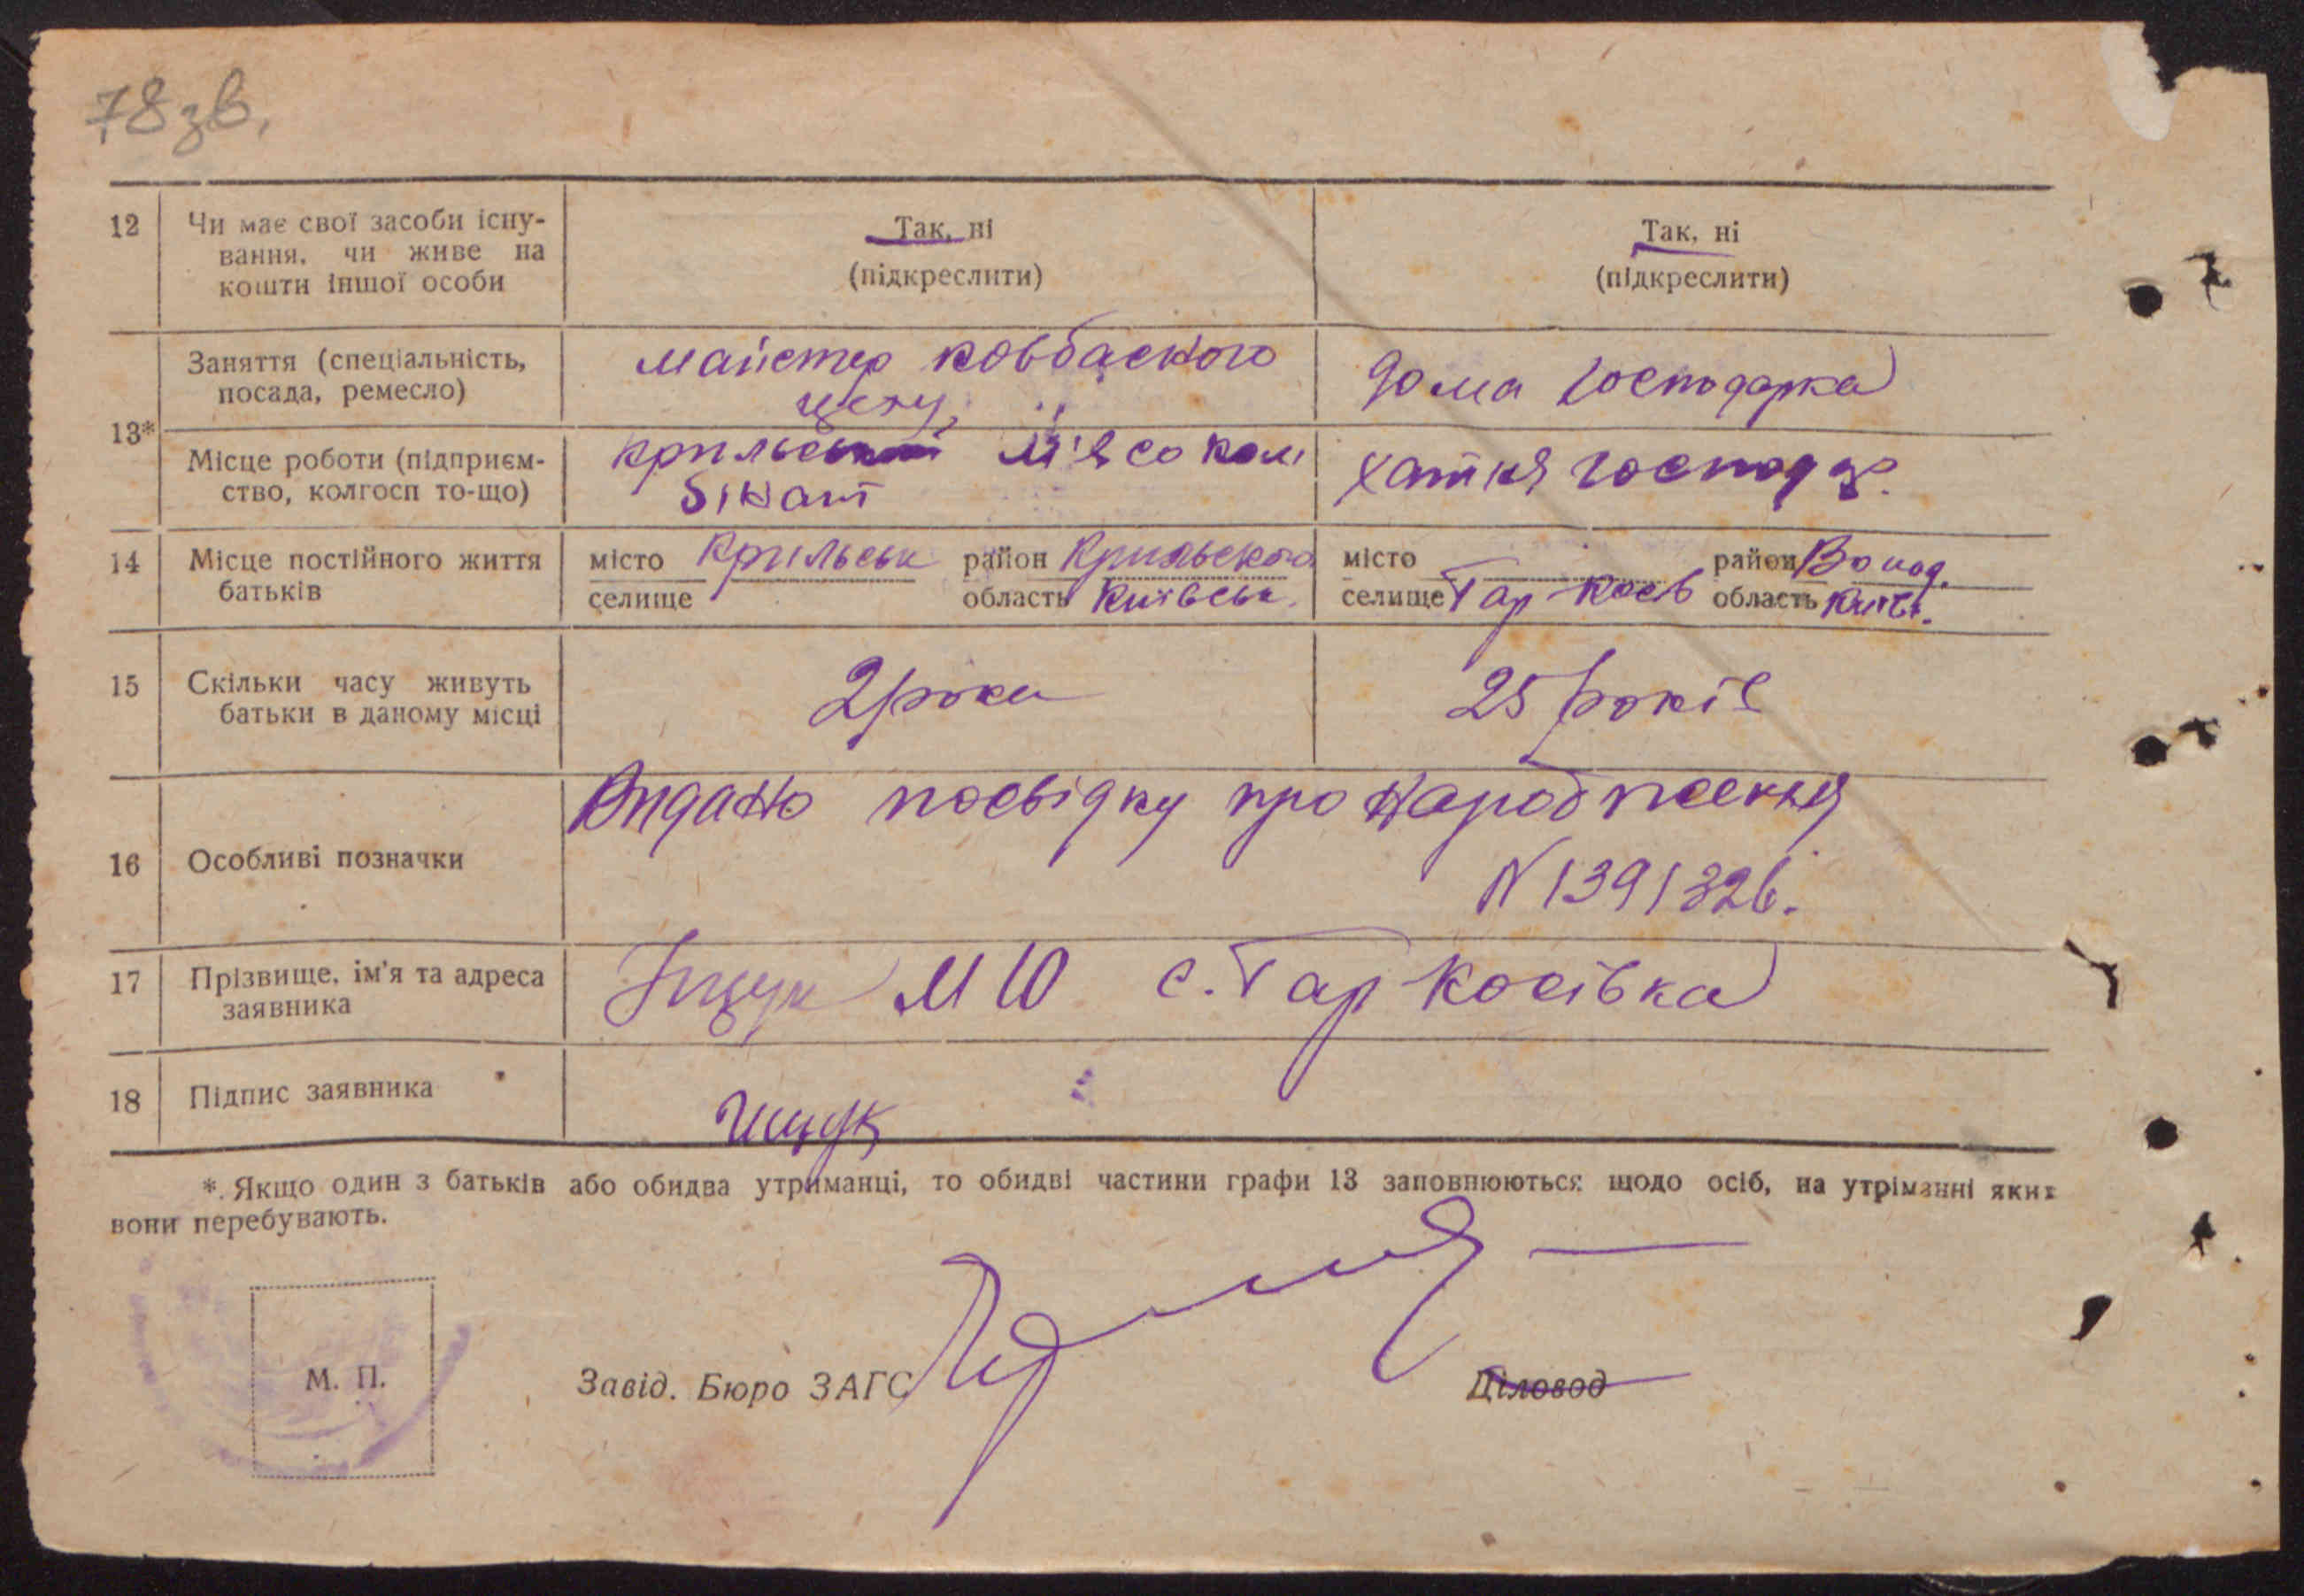 78зв.
12 Чи має свої засоби існу-
вання, чи живе на
кошти іншої особи
Так, ні
(підкреслити)
Так, ні
(підкреслити)
13*
Заняття (спеціальність,
посада, ремесло)
майстер ковбасного
цеху,
дома господарка
Місце роботи (підприєм-
ство, колгосп то-що)
м'ясо ком
бінат
хатня господар.
14 Місце постійного життя
батьків
місто Крильськ район Крильского
селище область Київськ.
місто район Волод.
селище Гар Косів область Київ.
15 Скільки часу живуть
батьки в даному місці
2 роки
25 років
16 Особливі позначки
Видано посвідку про народження
N 1391326.
17 Прізвище, ім'я та адреса
заявника
Іщук М Ю с. Гар Косівка
18 Підпис заявника
Ищук
*. Якщо один з батьків або обидва утриманці, то обидві частини графи 13 заповнюються щодо осіб, на утріманні яких
вони перебувають.
М. П.
Завід. Бюро ЗАГС
Діловод